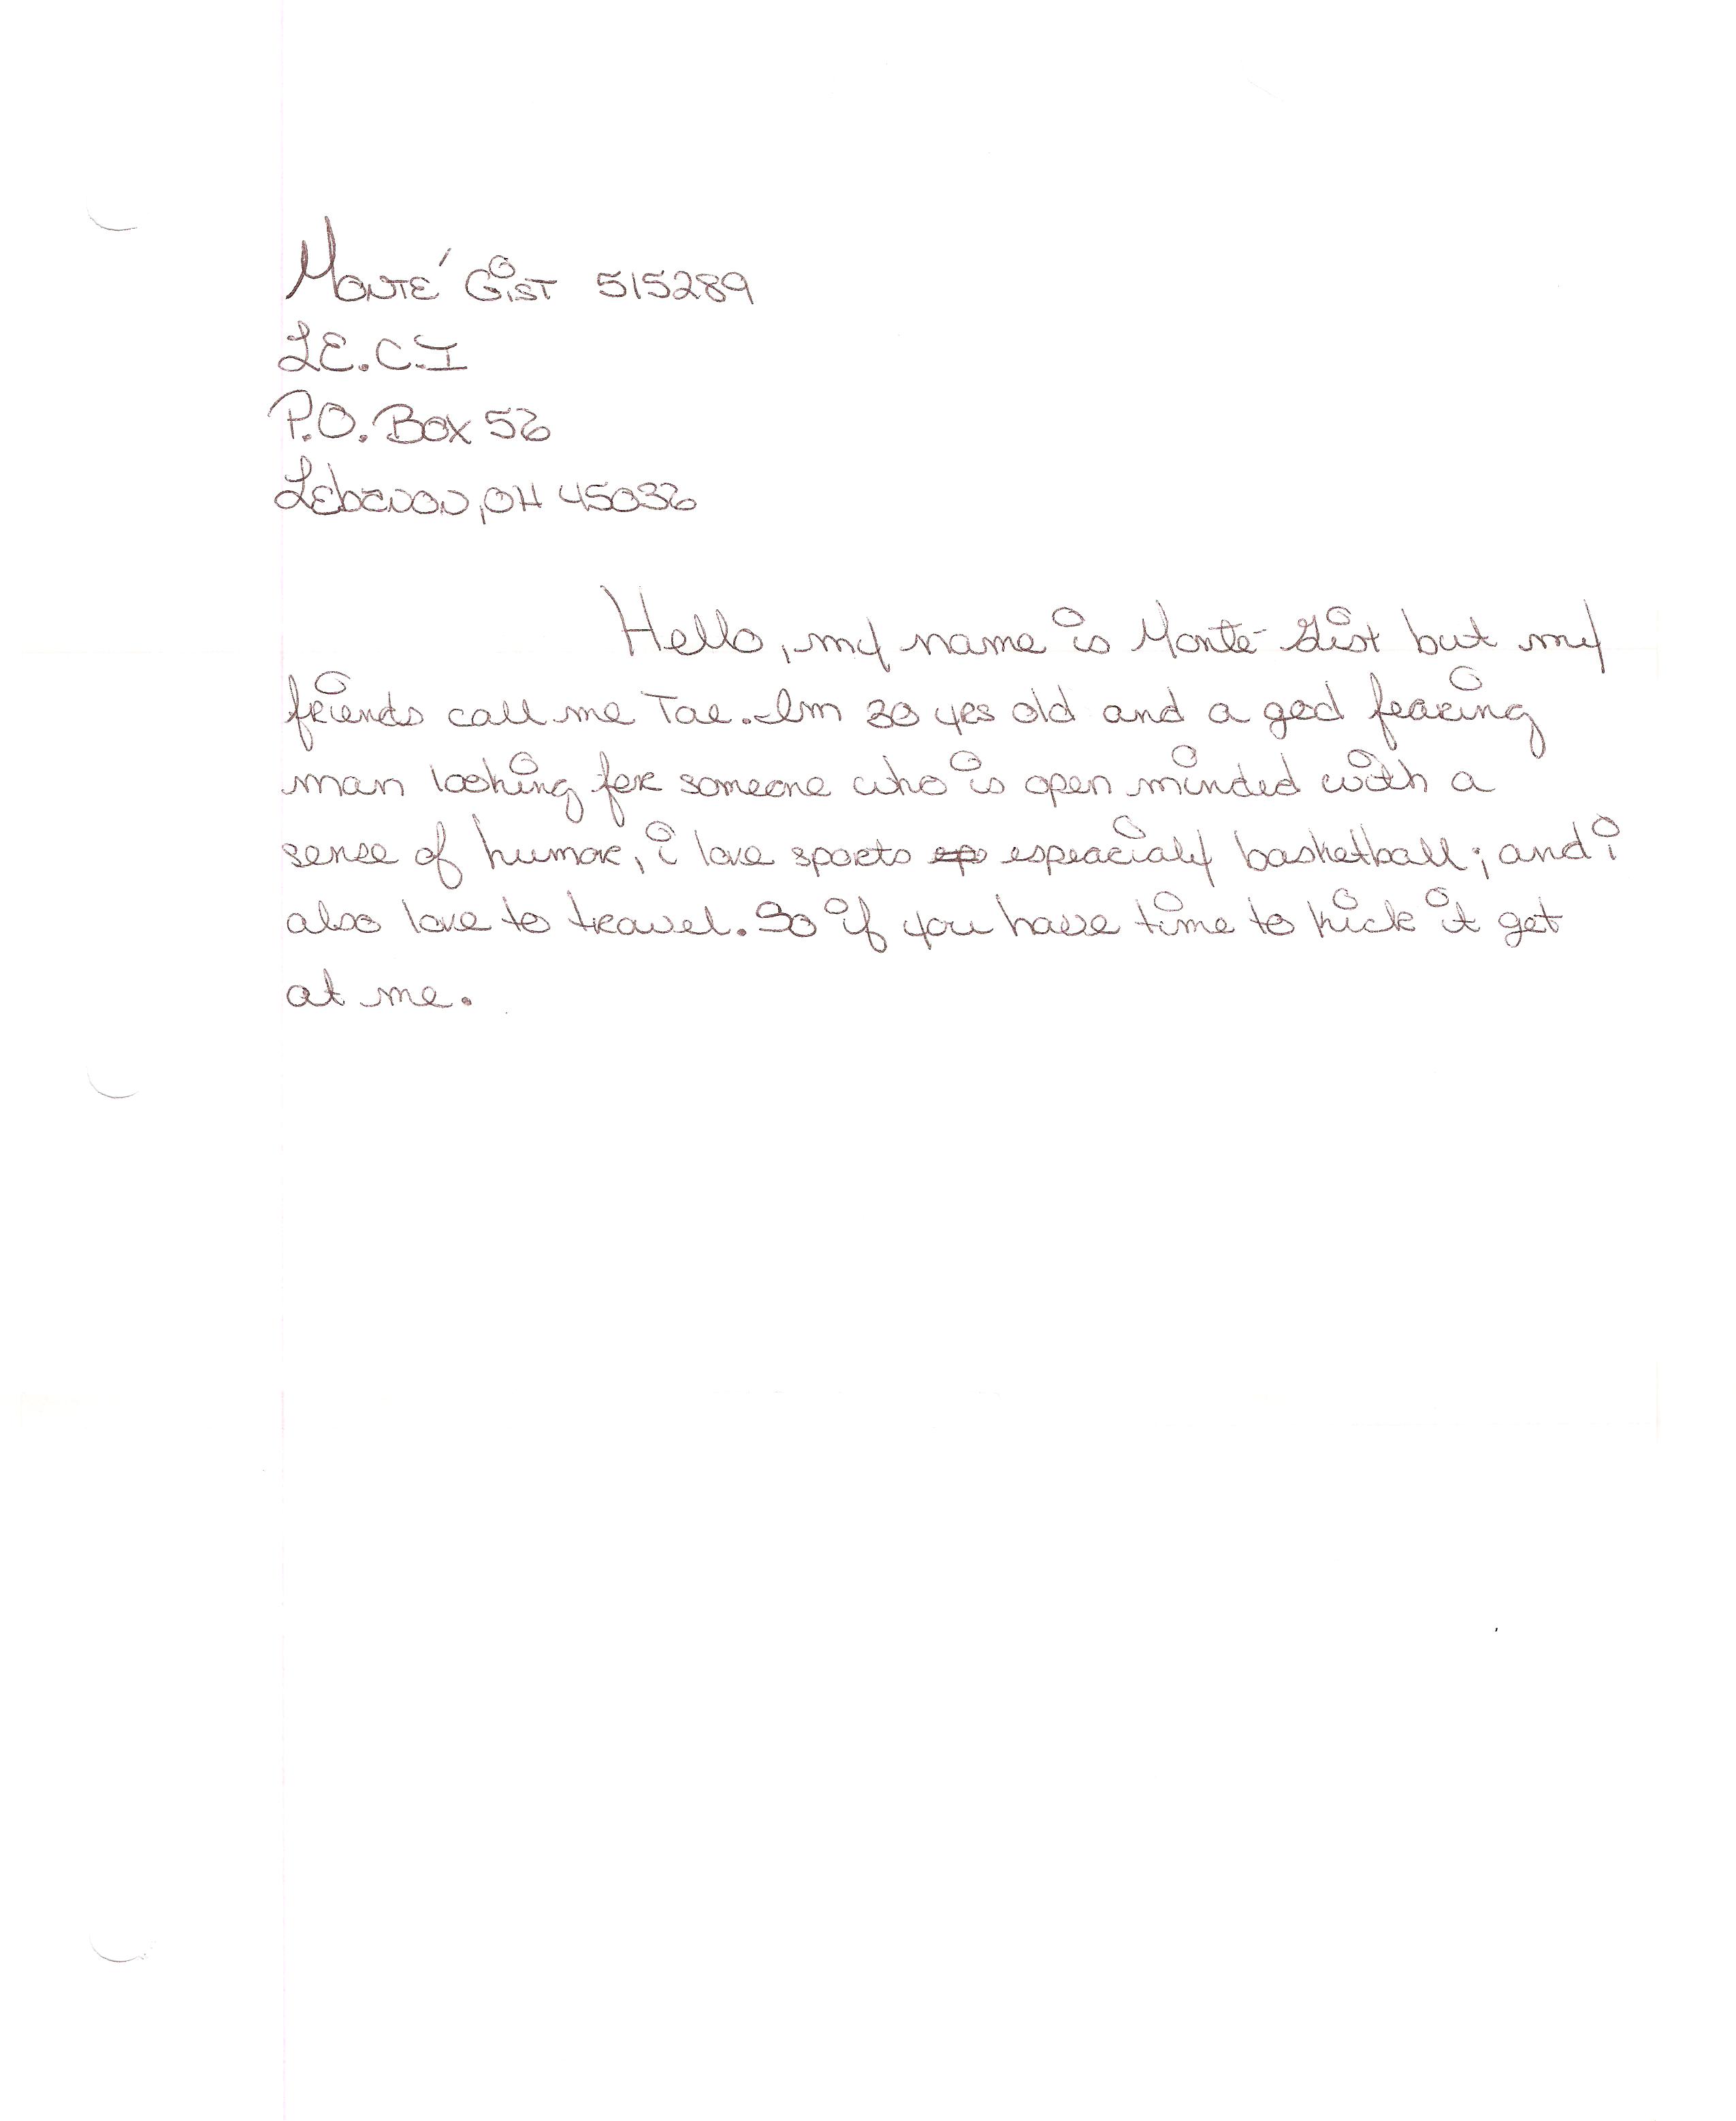 Monté Gist 515289
LE.C.I
P.O. Box 56
Lebanon, OH 45036
Hello, my name is Monté Gist but my
friends call me Tae. Im 30 yrs old and a god fearing
man looking for someone who is open minded with a
sense of humor, i love sports esp espeacialy basketball; and i
also love to travel. So if you have time to kick it get
at me.